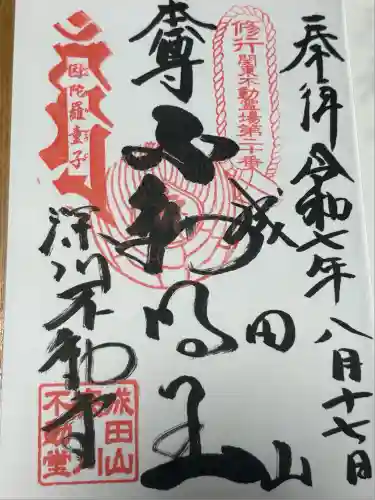 奉拝
令和七年
八月十七日
修行
関東不動霊場第二十番
成田山
本尊
不動明王
深川不動堂
成田山
深川
不動堂
陀羅童子